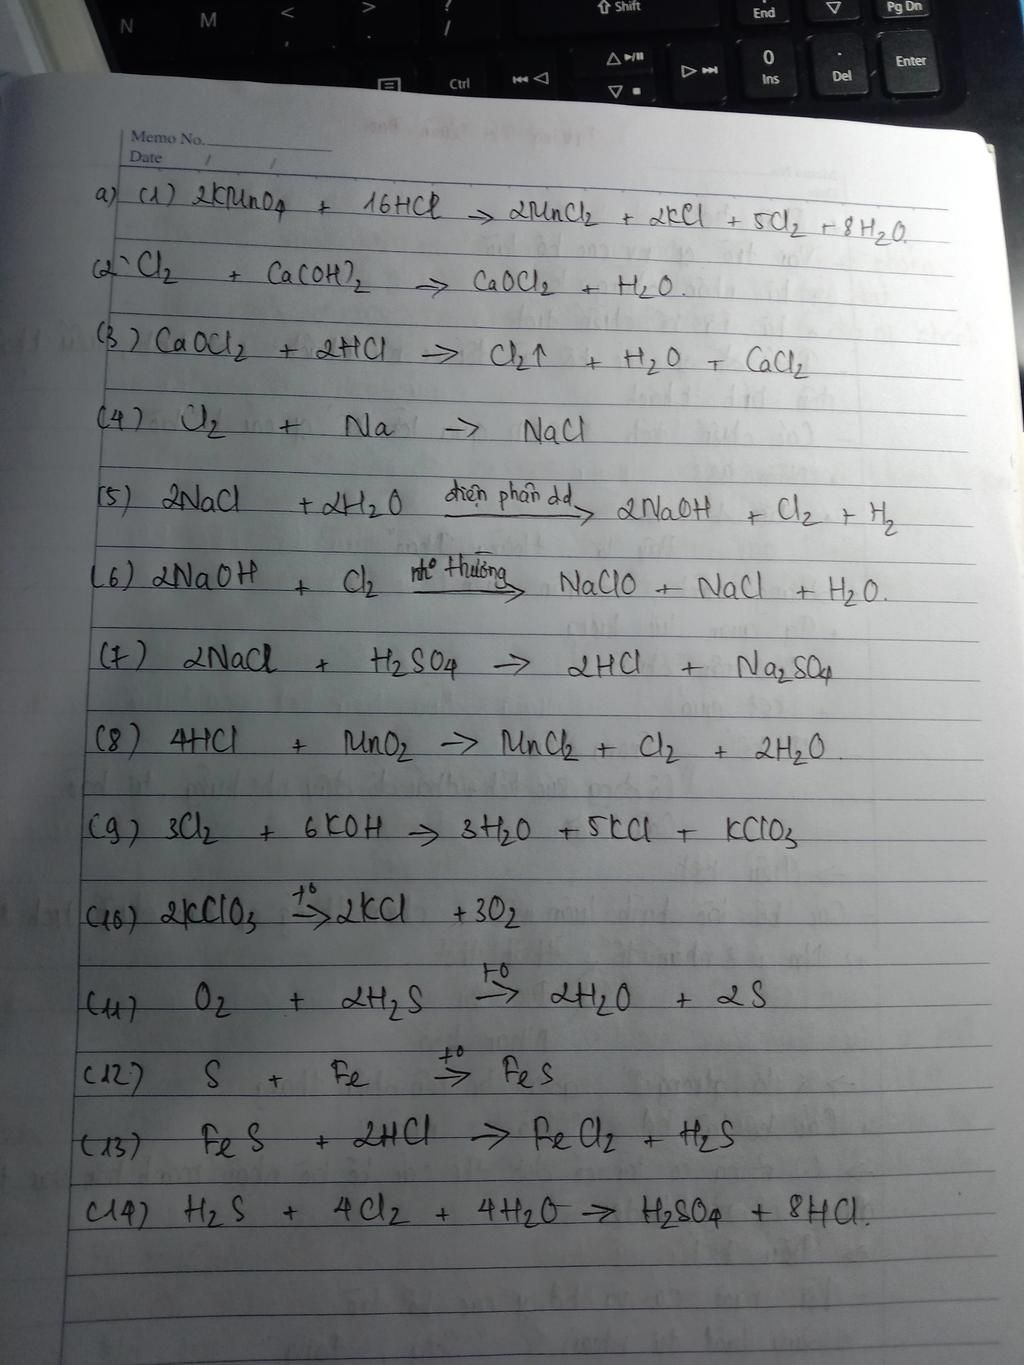 N M < > ? / ⇧ Shift End ▽ Pg Dn
, . Ctrl ⏮ ◁ △ ⏯ ▽ ■ ▷ ⏭ 0 Ins . Del Enter
Memo No.
Date / /
a) (1) 2KMnO4 + 16HCl → 2MnCl2 + 2KCl + 5Cl2 + 8H2O.
(2) Cl2 + Ca(OH)2 → CaOCl2 + H2O.
(3) CaOCl2 + 2HCl → Cl2↑ + H2O + CaCl2
(4) Cl2 + Na → NaCl
(5) 2NaCl + 2H2O điện phân dd → 2NaOH + Cl2 + H2
(6) 2NaOH + Cl2 nhº thường → NaClO + NaCl + H2O.
(7) 2NaCl + H2SO4 → 2HCl + Na2SO4
(8) 4HCl + MnO2 → MnCl2 + Cl2 + 2H2O.
(9) 3Cl2 + 6KOH → 3H2O + 5KCl + KClO3
(10) 2KClO3 tº → 2KCl + 3O2
(11) O2 + 2H2S tº → 2H2O + 2S
(12) S + Fe tº → FeS
(13) FeS + 2HCl → FeCl2 + H2S
(14) H2S + 4Cl2 + 4H2O → H2SO4 + 8HCl.